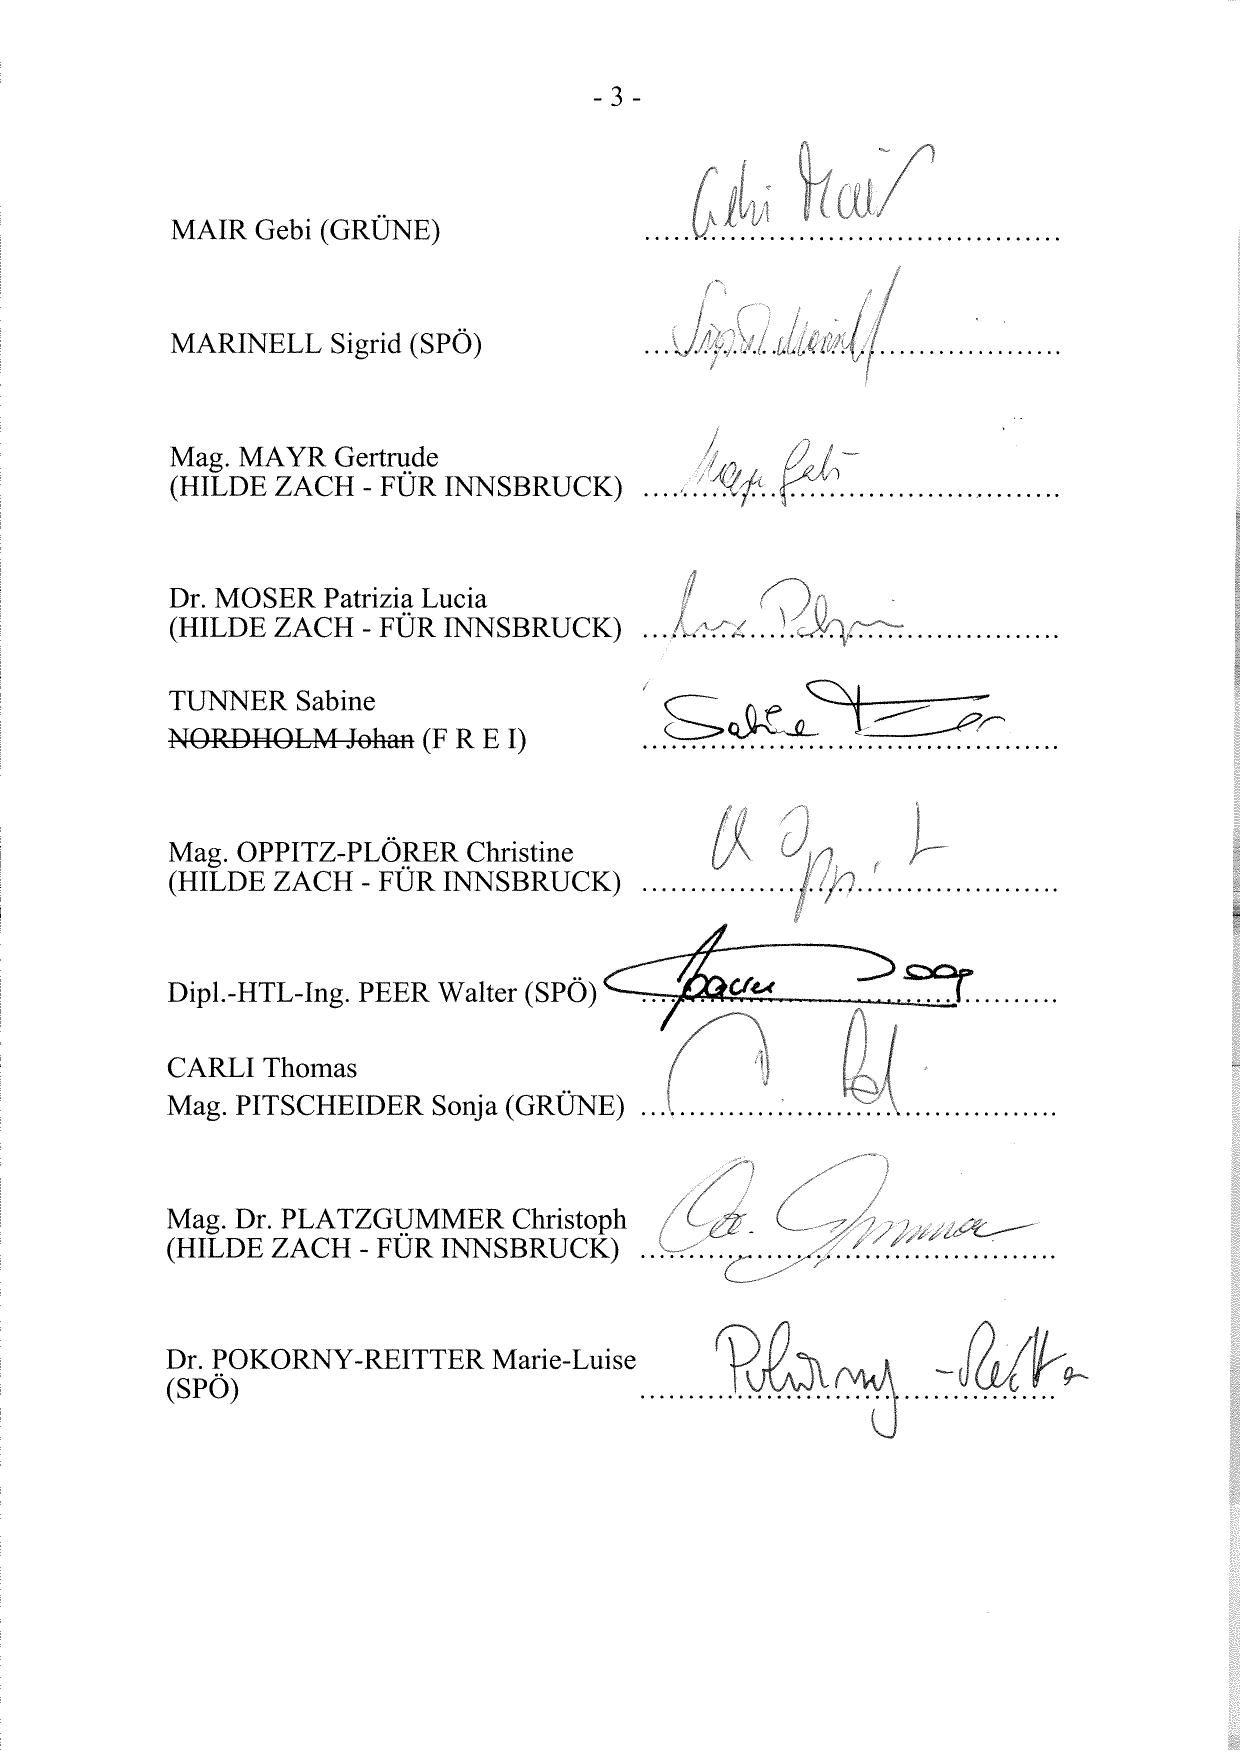 - 3 -
Gebi Mair
MAIR Gebi (GRÜNE) ..........................................
MARINELL Sigrid (SPÖ) ..........................................
Mag. MAYR Gertrude
(HILDE ZACH - FÜR INNSBRUCK) ..........................................
Dr. MOSER Patrizia Lucia
(HILDE ZACH - FÜR INNSBRUCK) ..........................................
TUNNER Sabine
Sabine
NORDHOLM Johan (F R E I) ..........................................
Mag. OPPITZ-PLÖRER Christine
(HILDE ZACH - FÜR INNSBRUCK) ..........................................
Dipl.-HTL-Ing. PEER Walter (SPÖ) ..........................................
CARLI Thomas
Mag. PITSCHEIDER Sonja (GRÜNE) ..........................................
Mag. Dr. PLATZGUMMER Christoph
(HILDE ZACH - FÜR INNSBRUCK) ..........................................
Dr. POKORNY-REITTER Marie-Luise
Pokorny-Reitter
(SPÖ) ..........................................